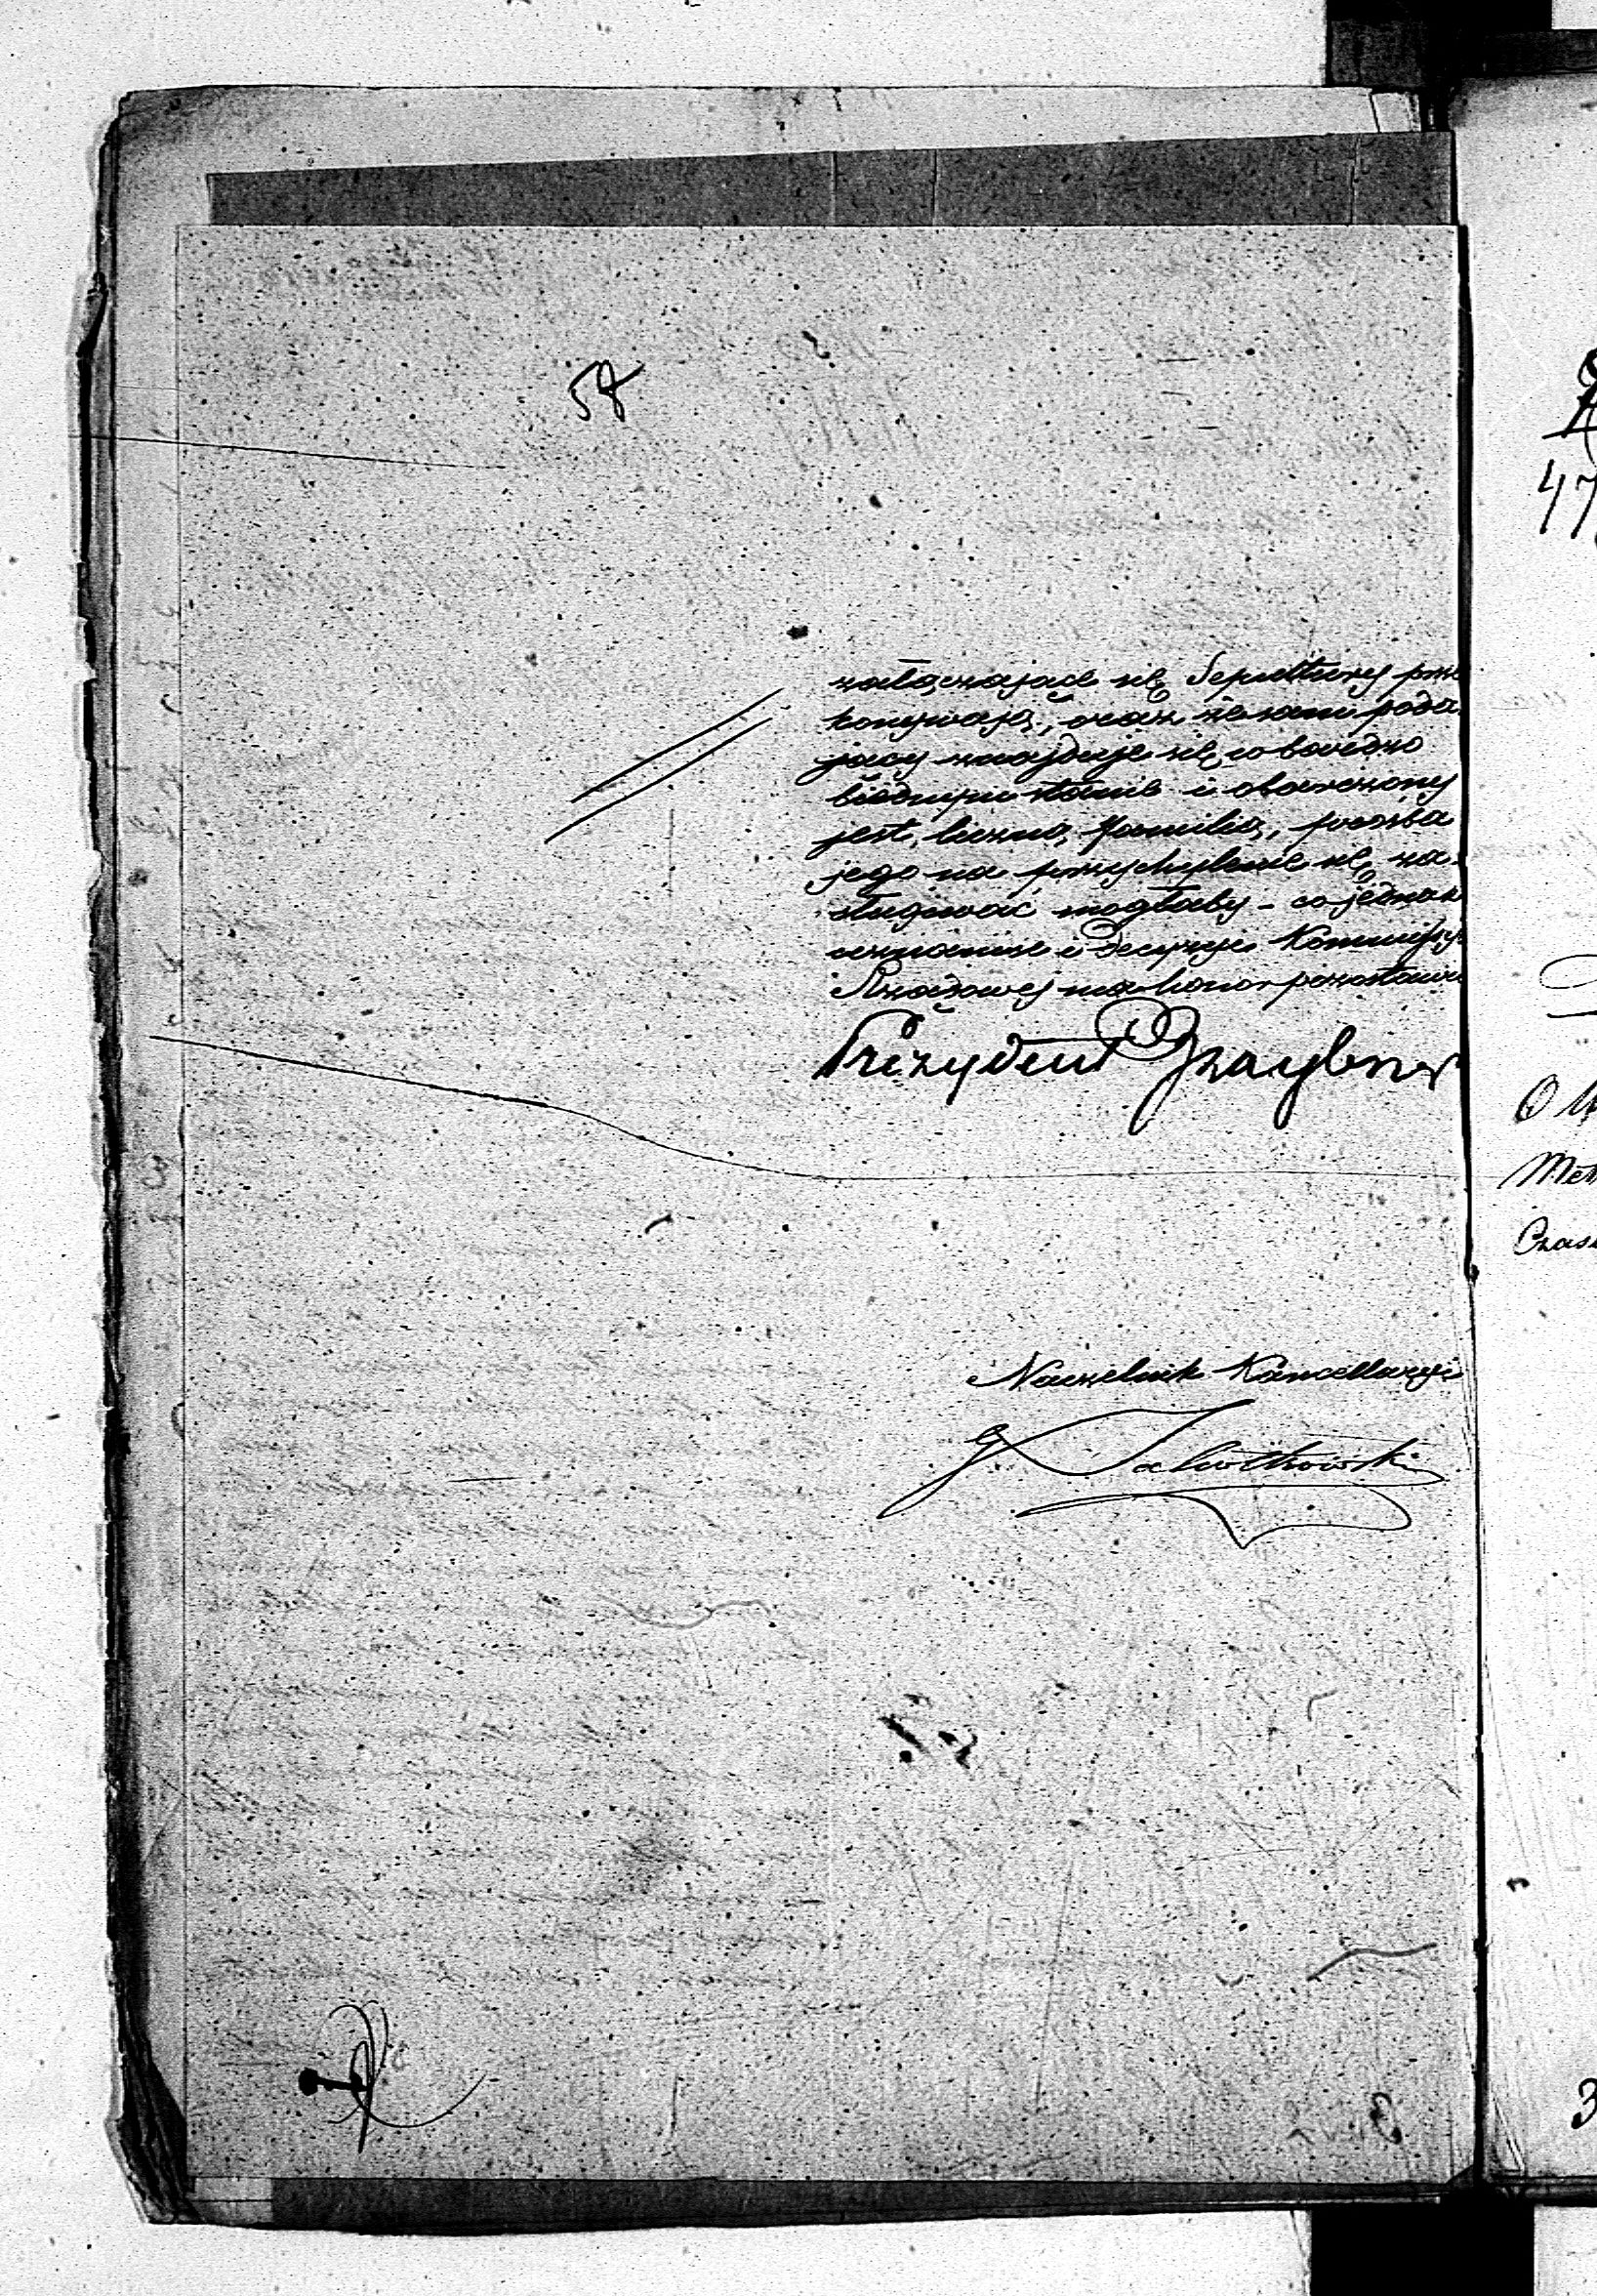 58
załączające się Sepultury prze
konywają, oraz że sam poda
jacy znajduje się w bardzo
biednym stanie i obarczony
jest, liczną familią, prośba
jego na przychylenie się za
sługiwać mogłaby - co jednak
uznaniu i decyzyi Kommissyi
Rządowej ma honor pozostawić
Prezydent
Naczelnik Kancellaryi
47
O
Met
Czas
3